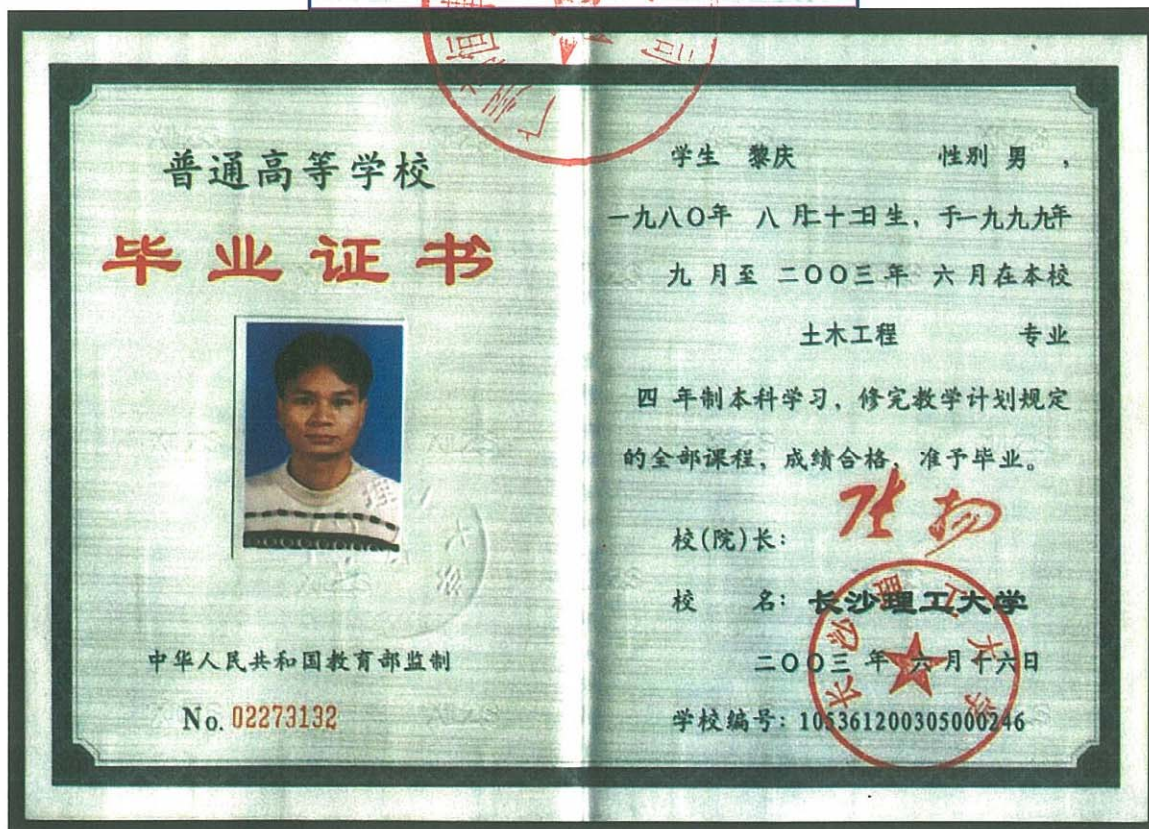 普通高等学校
毕业证书
中华人民共和国教育部监制
No. 02273132
学生 黎庆 性别 男 ,
一九八〇年 八 月二十二日生, 于一九九九年
九 月至 二〇〇三 年 六 月在本校
土木工程 专业
四 年制本科学习, 修完教学计划规定
的全部课程, 成绩合格, 准予毕业。
校(院)长:
校 名: 长沙理工大学
二〇〇三 年 六月十六日
学校编号: 105361200305000246
长沙理工大学